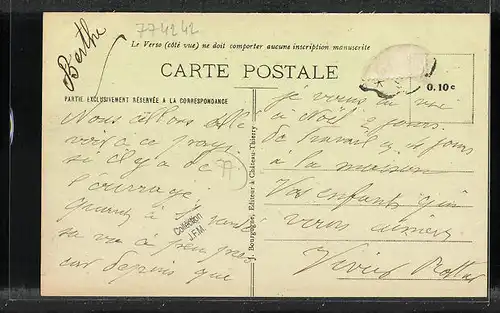 774242
Berthe
Le Verso (côté vue) ne doit comporter aucune inscription manuscrite
CARTE POSTALE
0.10 c
PARTIE EXCLUSIVEMENT RÉSERVÉE A LA CORRESPONDANCE
Nous allons
voir à ce
si il y a de
l'ouvrage
quant à
sa va à peu près
car depuis que
77
Collection
J.F.M.
J. Bourgogne, Editeur à Château-Thierry
je vous
a 2 jours
de travail 4 jours
à la maison
Vos enfants qui
vous aiment